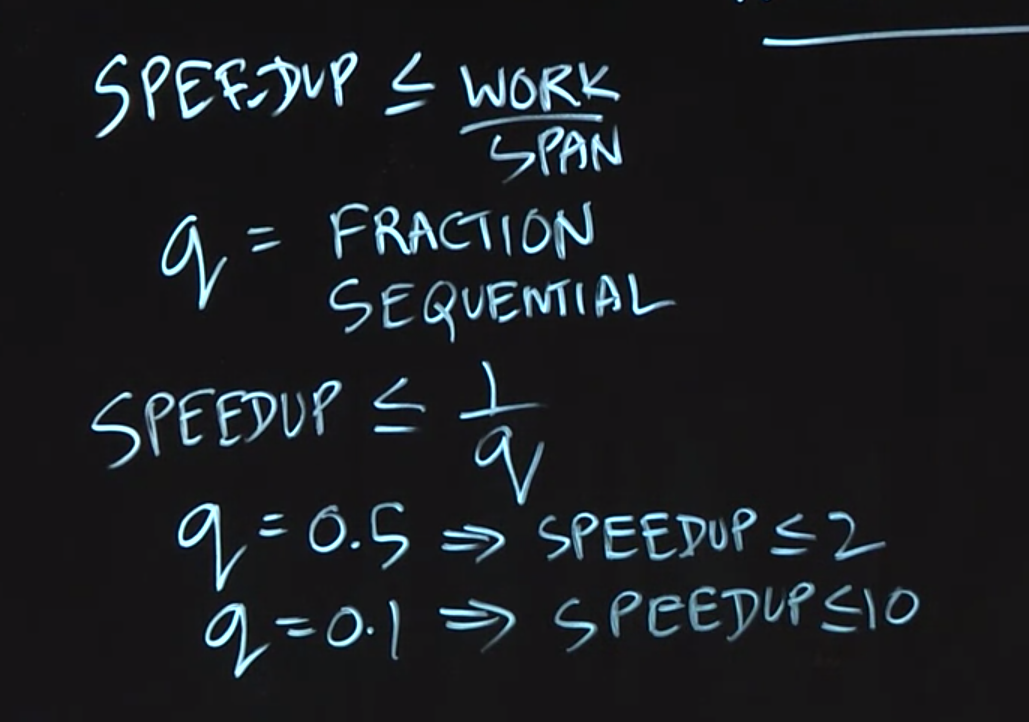 SPEEDUP ≤ WORK
SPAN
q = FRACTION
SEQUENTIAL
SPEEDUP ≤ 1
q
q = 0.5 ⇒ SPEEDUP ≤ 2
q = 0.1 ⇒ SPEEDUP ≤ 10